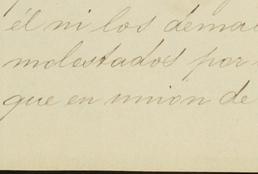 él ni los demas
molestados por
que en union de